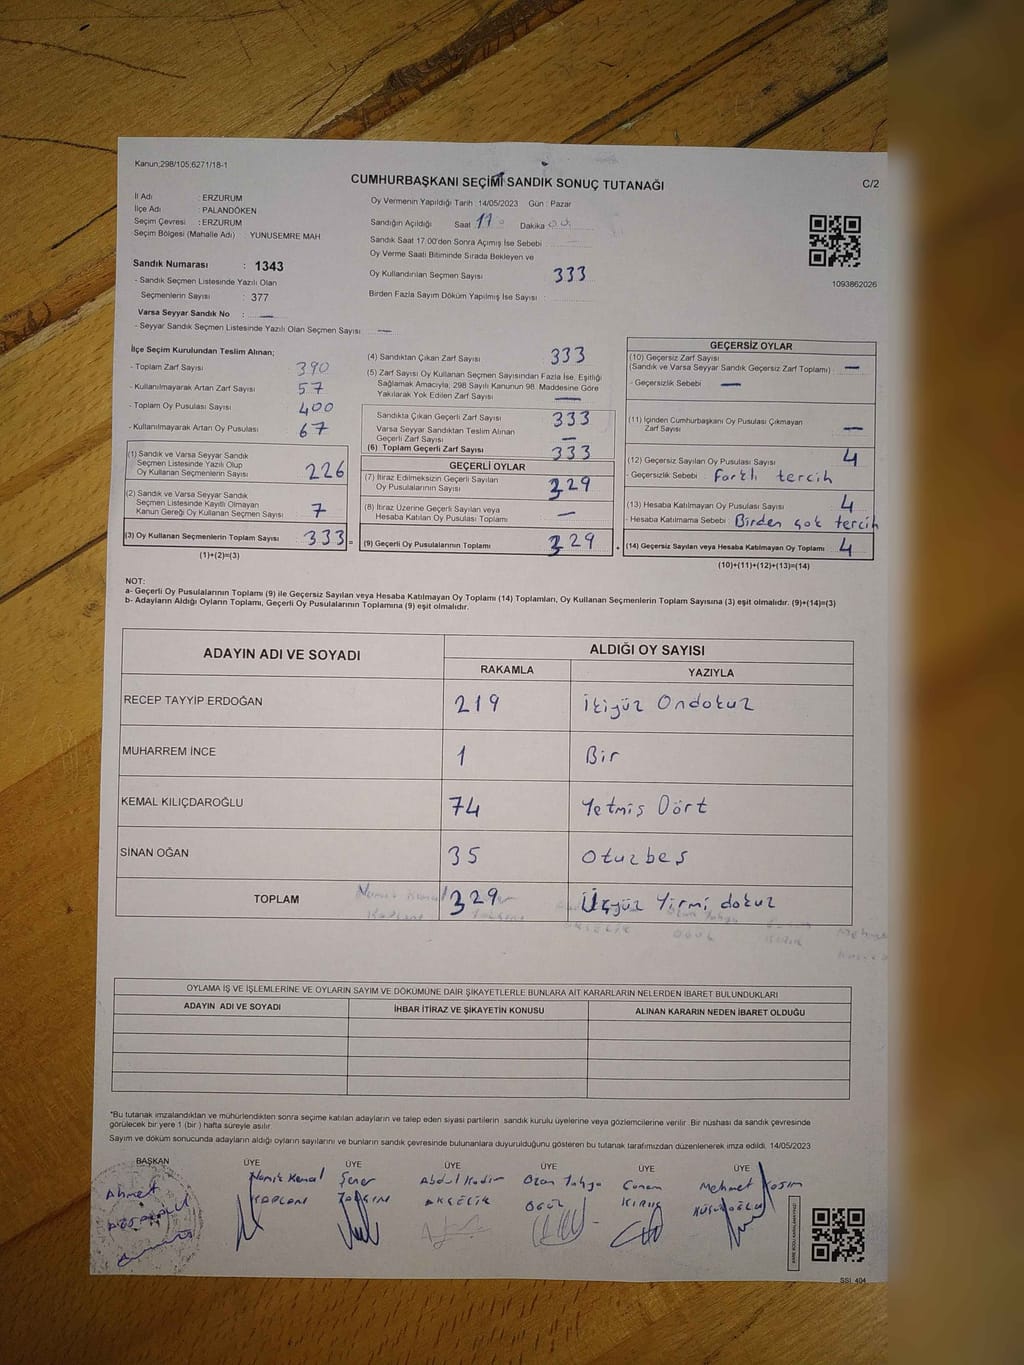 Kanun;298/105,6271/18-1
CUMHURBAŞKANI SEÇİMİ SANDIK SONUÇ TUTANAĞI
C/2
İl Adı : ERZURUM
İlçe Adı : PALANDÖKEN
Seçim Çevresi : ERZURUM
Seçim Bölgesi (Mahalle Adı) : YUNUSEMRE MAH
Sandık Numarası : 1343
- Sandık Seçmen Listesinde Yazılı Olan
Seçmenlerin Sayısı : 377
Varsa Seyyar Sandık No : —
- Seyyar Sandık Seçmen Listesinde Yazılı Olan Seçmen Sayısı —
Oy Vermenin Yapıldığı Tarih : 14/05/2023 Gün : Pazar
Sandığın Açıldığı Saat 17 Dakika 00
Sandık Saat 17.00'den Sonra Açımış İse Sebebi
Oy Verme Saati Bitiminde Sırada Bekleyen ve
Oy Kullandırılan Seçmen Sayısı 333
Birden Fazla Sayım Döküm Yapılmış İse Sayısı :
1093862026
İlçe Seçim Kurulundan Teslim Alınan;
- Toplam Zarf Sayısı 390
- Kullanılmayarak Artan Zarf Sayısı 57
- Toplam Oy Pusulası Sayısı 400
- Kullanılmayarak Artan Oy Pusulası 67
(1) Sandık ve Varsa Seyyar Sandık
Seçmen Listesinde Yazılı Olup
Oy Kullanan Seçmenlerin Sayısı 226
(2) Sandık ve Varsa Seyyar Sandık
Seçmen Listesinde Kayıtlı Olmayan
Kanun Gereği Oy Kullanan Seçmen Sayısı 7
(3) Oy Kullanan Seçmenlerin Toplam Sayısı 333 =
(1)+(2)=(3)
(4) Sandıktan Çıkan Zarf Sayısı 333
(5) Zarf Sayısı Oy Kullanan Seçmen Sayısından Fazla İse, Eşitliği
Sağlamak Amacıyla, 298 Sayılı Kanunun 98. Maddesine Göre
Yakılarak Yok Edilen Zarf Sayısı —
Sandıkta Çıkan Geçerli Zarf Sayısı 333
Varsa Seyyar Sandıktan Teslim Alınan
Geçerli Zarf Sayısı —
(6) Toplam Geçerli Zarf Sayısı 333
GEÇERLİ OYLAR
(7) İtiraz Edilmeksizin Geçerli Sayılan
Oy Pusulalarının Sayısı 329
(8) İtiraz Üzerine Geçerli Sayılan veya
Hesaba Katılan Oy Pusulası Toplamı —
(9) Geçerli Oy Pusulalarının Toplamı 329 +
GEÇERSİZ OYLAR
(10) Geçersiz Zarf Sayısı
(Sandık ve Varsa Seyyar Sandık Geçersiz Zarf Toplamı) —
- Geçersizlik Sebebi —
(11) İçinden Cumhurbaşkanı Oy Pusulası Çıkmayan
Zarf Sayısı —
(12) Geçersiz Sayılan Oy Pusulası Sayısı 4
- Geçersizlik Sebebi farklı tercih
(13) Hesaba Katılmayan Oy Pusulası Sayısı 4
- Hesaba Katılmama Sebebi Birden çok tercih
(14) Geçersiz Sayılan veya Hesaba Katılmayan Oy Toplamı 4
(10)+(11)+(12)+(13)=(14)
NOT:
a- Geçerli Oy Pusulalarının Toplamı (9) ile Geçersiz Sayılan veya Hesaba Katılmayan Oy Toplamı (14) Toplamları, Oy Kullanan Seçmenlerin Toplam Sayısına (3) eşit olmalıdır. (9)+(14)=(3)
b- Adayların Aldığı Oyların Toplamı, Geçerli Oy Pusulalarının Toplamına (9) eşit olmalıdır.
ADAYIN ADI VE SOYADI ALDIĞI OY SAYISI
RAKAMLA YAZIYLA
RECEP TAYYİP ERDOĞAN 219 İkiyüz Ondokuz
MUHARREM İNCE 1 Bir
KEMAL KILIÇDAROĞLU 74 Yetmiş Dört
SİNAN OĞAN 35 Otuzbeş
TOPLAM 329 Üçyüz Yirmi dokuz
OYLAMA İŞ VE İŞLEMLERİNE VE OYLARIN SAYIM VE DÖKÜMÜNE DAİR ŞİKAYETLERLE BUNLARA AİT KARARLARIN NELERDEN İBARET BULUNDUKLARI
ADAYIN ADI VE SOYADI İHBAR İTİRAZ VE ŞİKAYETİN KONUSU ALINAN KARARIN NEDEN İBARET OLDUĞU
*Bu tutanak imzalandıktan ve mühürlendikten sonra seçime katılan adayların ve talep eden siyasi partilerin sandık kurulu üyelerine veya gözlemcilerine verilir. Bir nüshası da sandık çevresinde
görülecek bir yere 1 (bir ) hafta süreyle asılır.
Sayım ve döküm sonucunda adayların aldığı oyların sayılarını ve bunların sandık çevresinde bulunanlara duyurulduğunu gösteren bu tutanak tarafımızdan düzenlenerek imza edildi. 14/05/2023
BAŞKAN ÜYE ÜYE ÜYE ÜYE ÜYE ÜYE
Ahmet Namık Kemal Şener Abdul Kadir Ozan Tahga Canan Mehmet Kasım
KAPLANI AKÇELİK
SSI_404